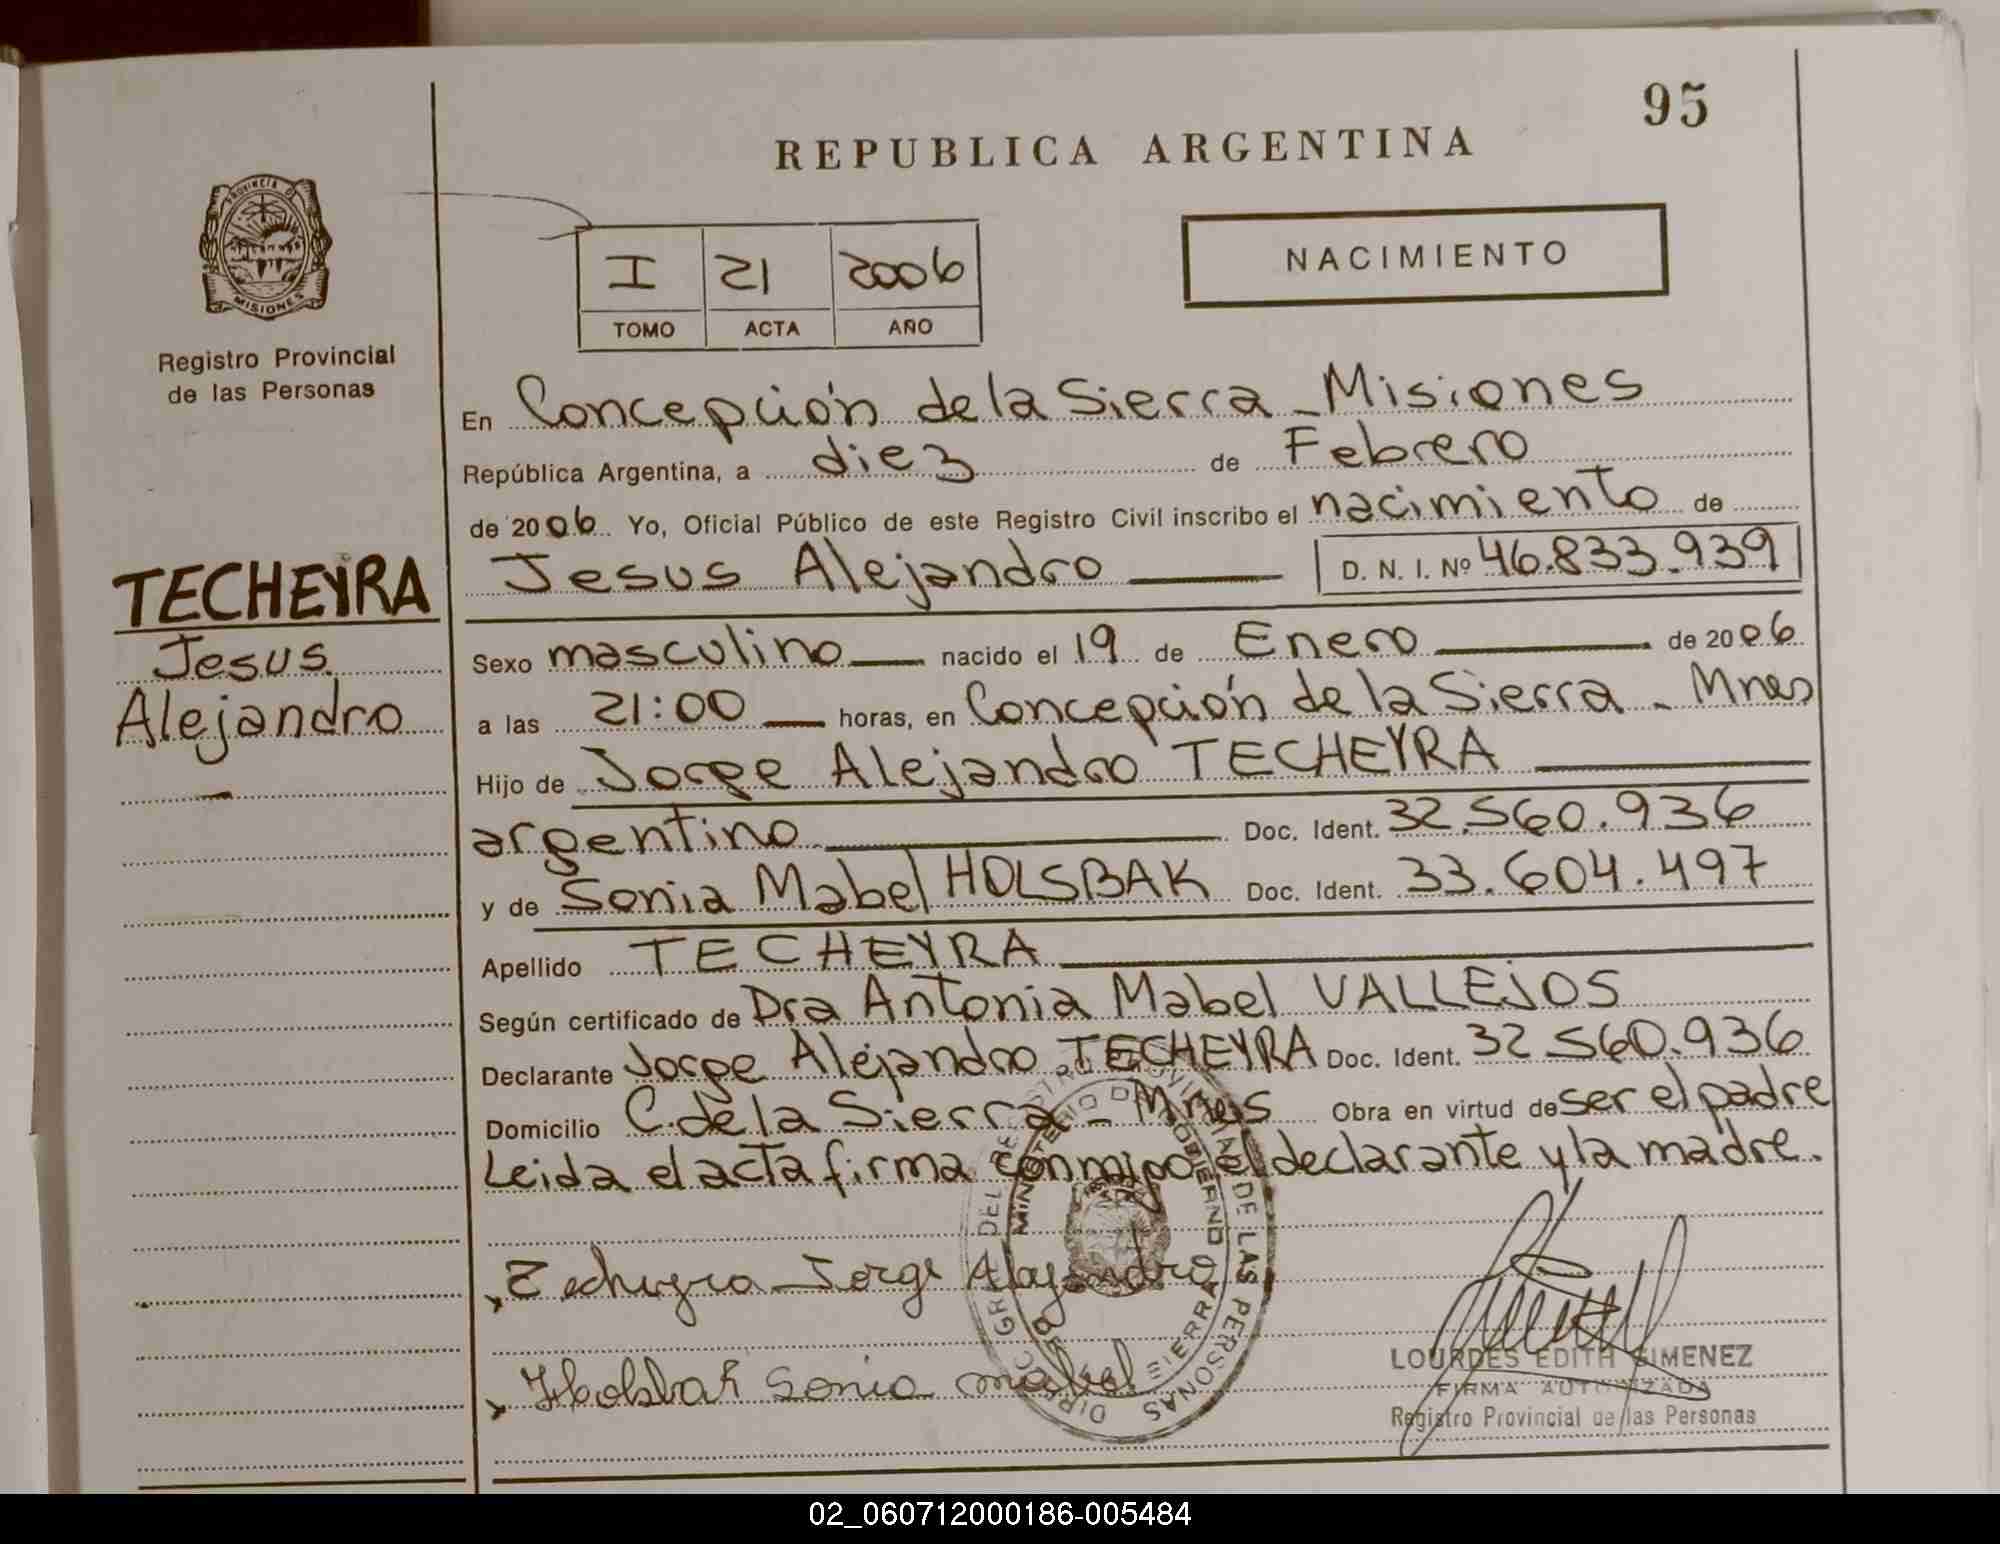 95
REPUBLICA ARGENTINA
PROVINCIA DE
MISIONES
Registro Provincial
de las Personas
I 21 2006
TOMO ACTA AÑO
NACIMIENTO
En Concepción de la Sierra - Misiones
República Argentina, a diez de Febrero
de 2006 Yo, Oficial Público de este Registro Civil inscribo el nacimiento de
Jesus Alejandro D. N. I. Nº 46.833.939
TECHEYRA
Jesus
Alejandro
Sexo masculino nacido el 19 de Enero de 2006
a las 21:00 horas, en Concepción de la Sierra - Mnes
Hijo de Jorge Alejandro TECHEYRA
argentino Doc. Ident. 32.560.936
y de Sonia Mabel HOLSBAK Doc. Ident. 33.604.497
Apellido TECHEYRA
Según certificado de Dra Antonia Mabel VALLEJOS
Declarante Jorge Alejandro TECHEYRA Doc. Ident. 32.560.936
Domicilio C. de la Sierra - Mnes Obra en virtud de ser el padre
Leida el acta firma conmigo el declarante y la madre.
Techeyra Jorge Alejandro
Holsbak Sonia mabel
MINISTERIO DE GOBIERNO
DE LAS PERSONAS
SIERRA
LOURDES EDITH GIMENEZ
FIRMA AUTORIZADA
Registro Provincial de las Personas
02_060712000186-005484